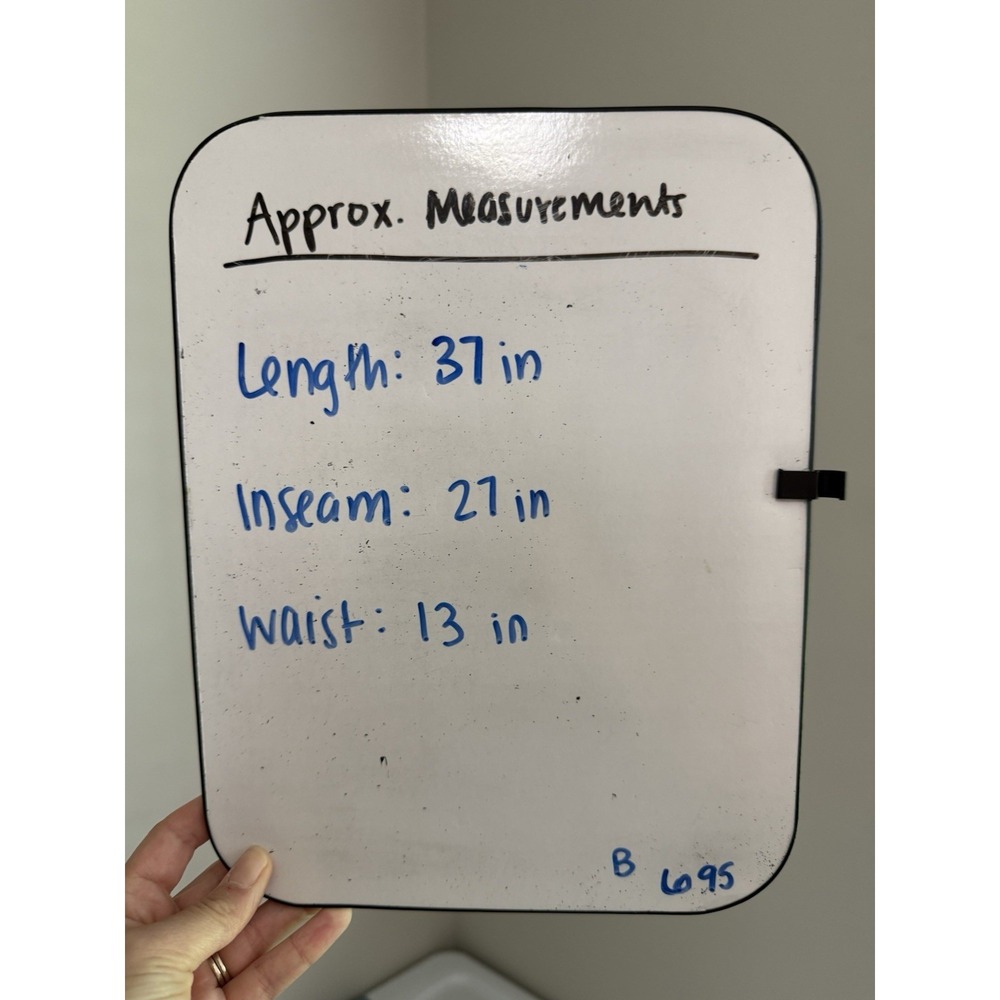 Approx. Measurements
Length: 37 in
Inseam: 27 in
Waist: 13 in
B 695